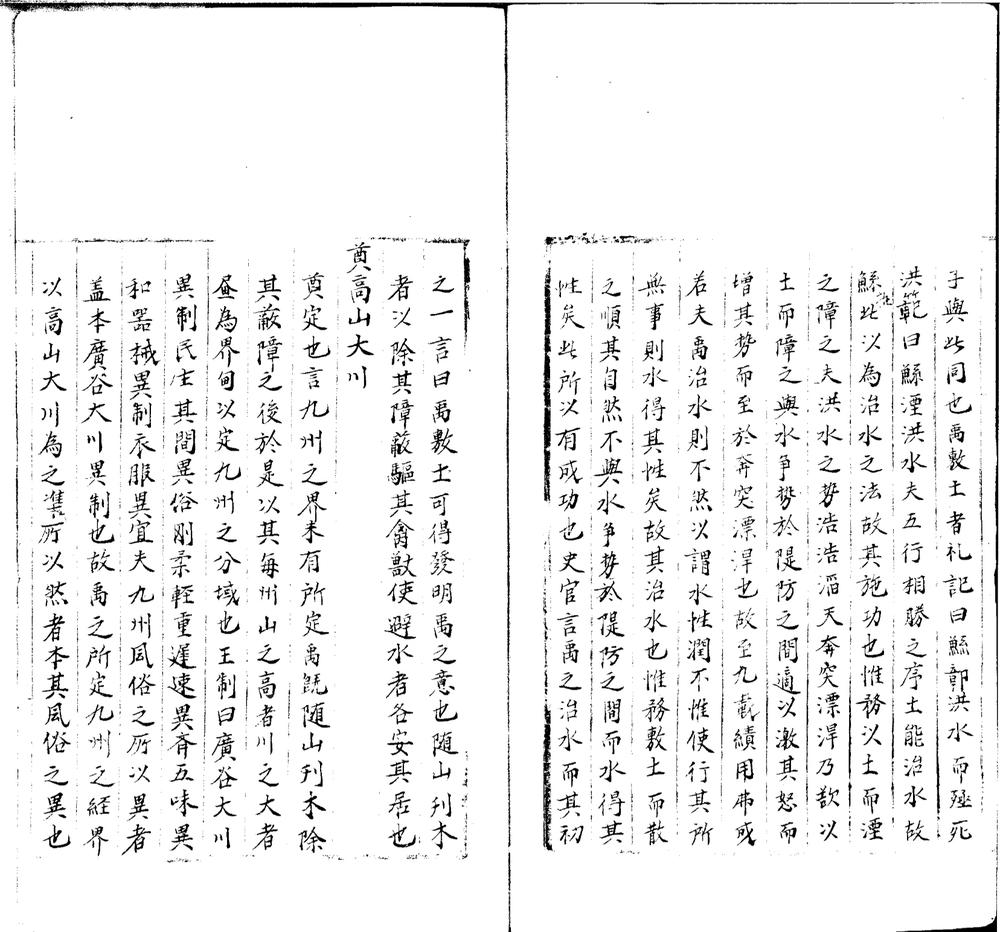 子與此同也禹敷土者礼記曰鯀鄣洪水而殛死
洪範曰鯀湮洪水夫五行相勝之序土能治水故
鯀此以為治水之法故其施功也惟務以土而湮
之障之夫洪水之勢浩浩滔天奔突漂溳乃欲以
土而障之與水争勢於隄防之間適以激其怒而
增其勢而至於奔突漂溳也故至九載績用弗成
若夫禹治水則不然以謂水性潤不惟使行其所
無事則水得其性矣故其治水也惟務敷土而散
之順其自然不與水争勢於隄防之間而水得其
性矣此所以有成功也史官言禹之治水而其初
之一言曰禹敷土可得發明禹之意也随山刋木
者以除其障蔽驅其禽獸使避水者各安其居也
奠高山大川
奠定也言九州之界未有所定禹既随山刋木除
其蔽障之後於是以其每州山之高者川之大者
畫為界甸以定九州之分域也王制曰廣谷大川
異制民生其間異俗剛柔輕重遲速異齊五味異
和器械異制衣服異宜夫九州風俗之所以異者
盖本廣谷大川異制也故禹之所定九州之経界
以高山大川為之準所以然者本其風俗之異也